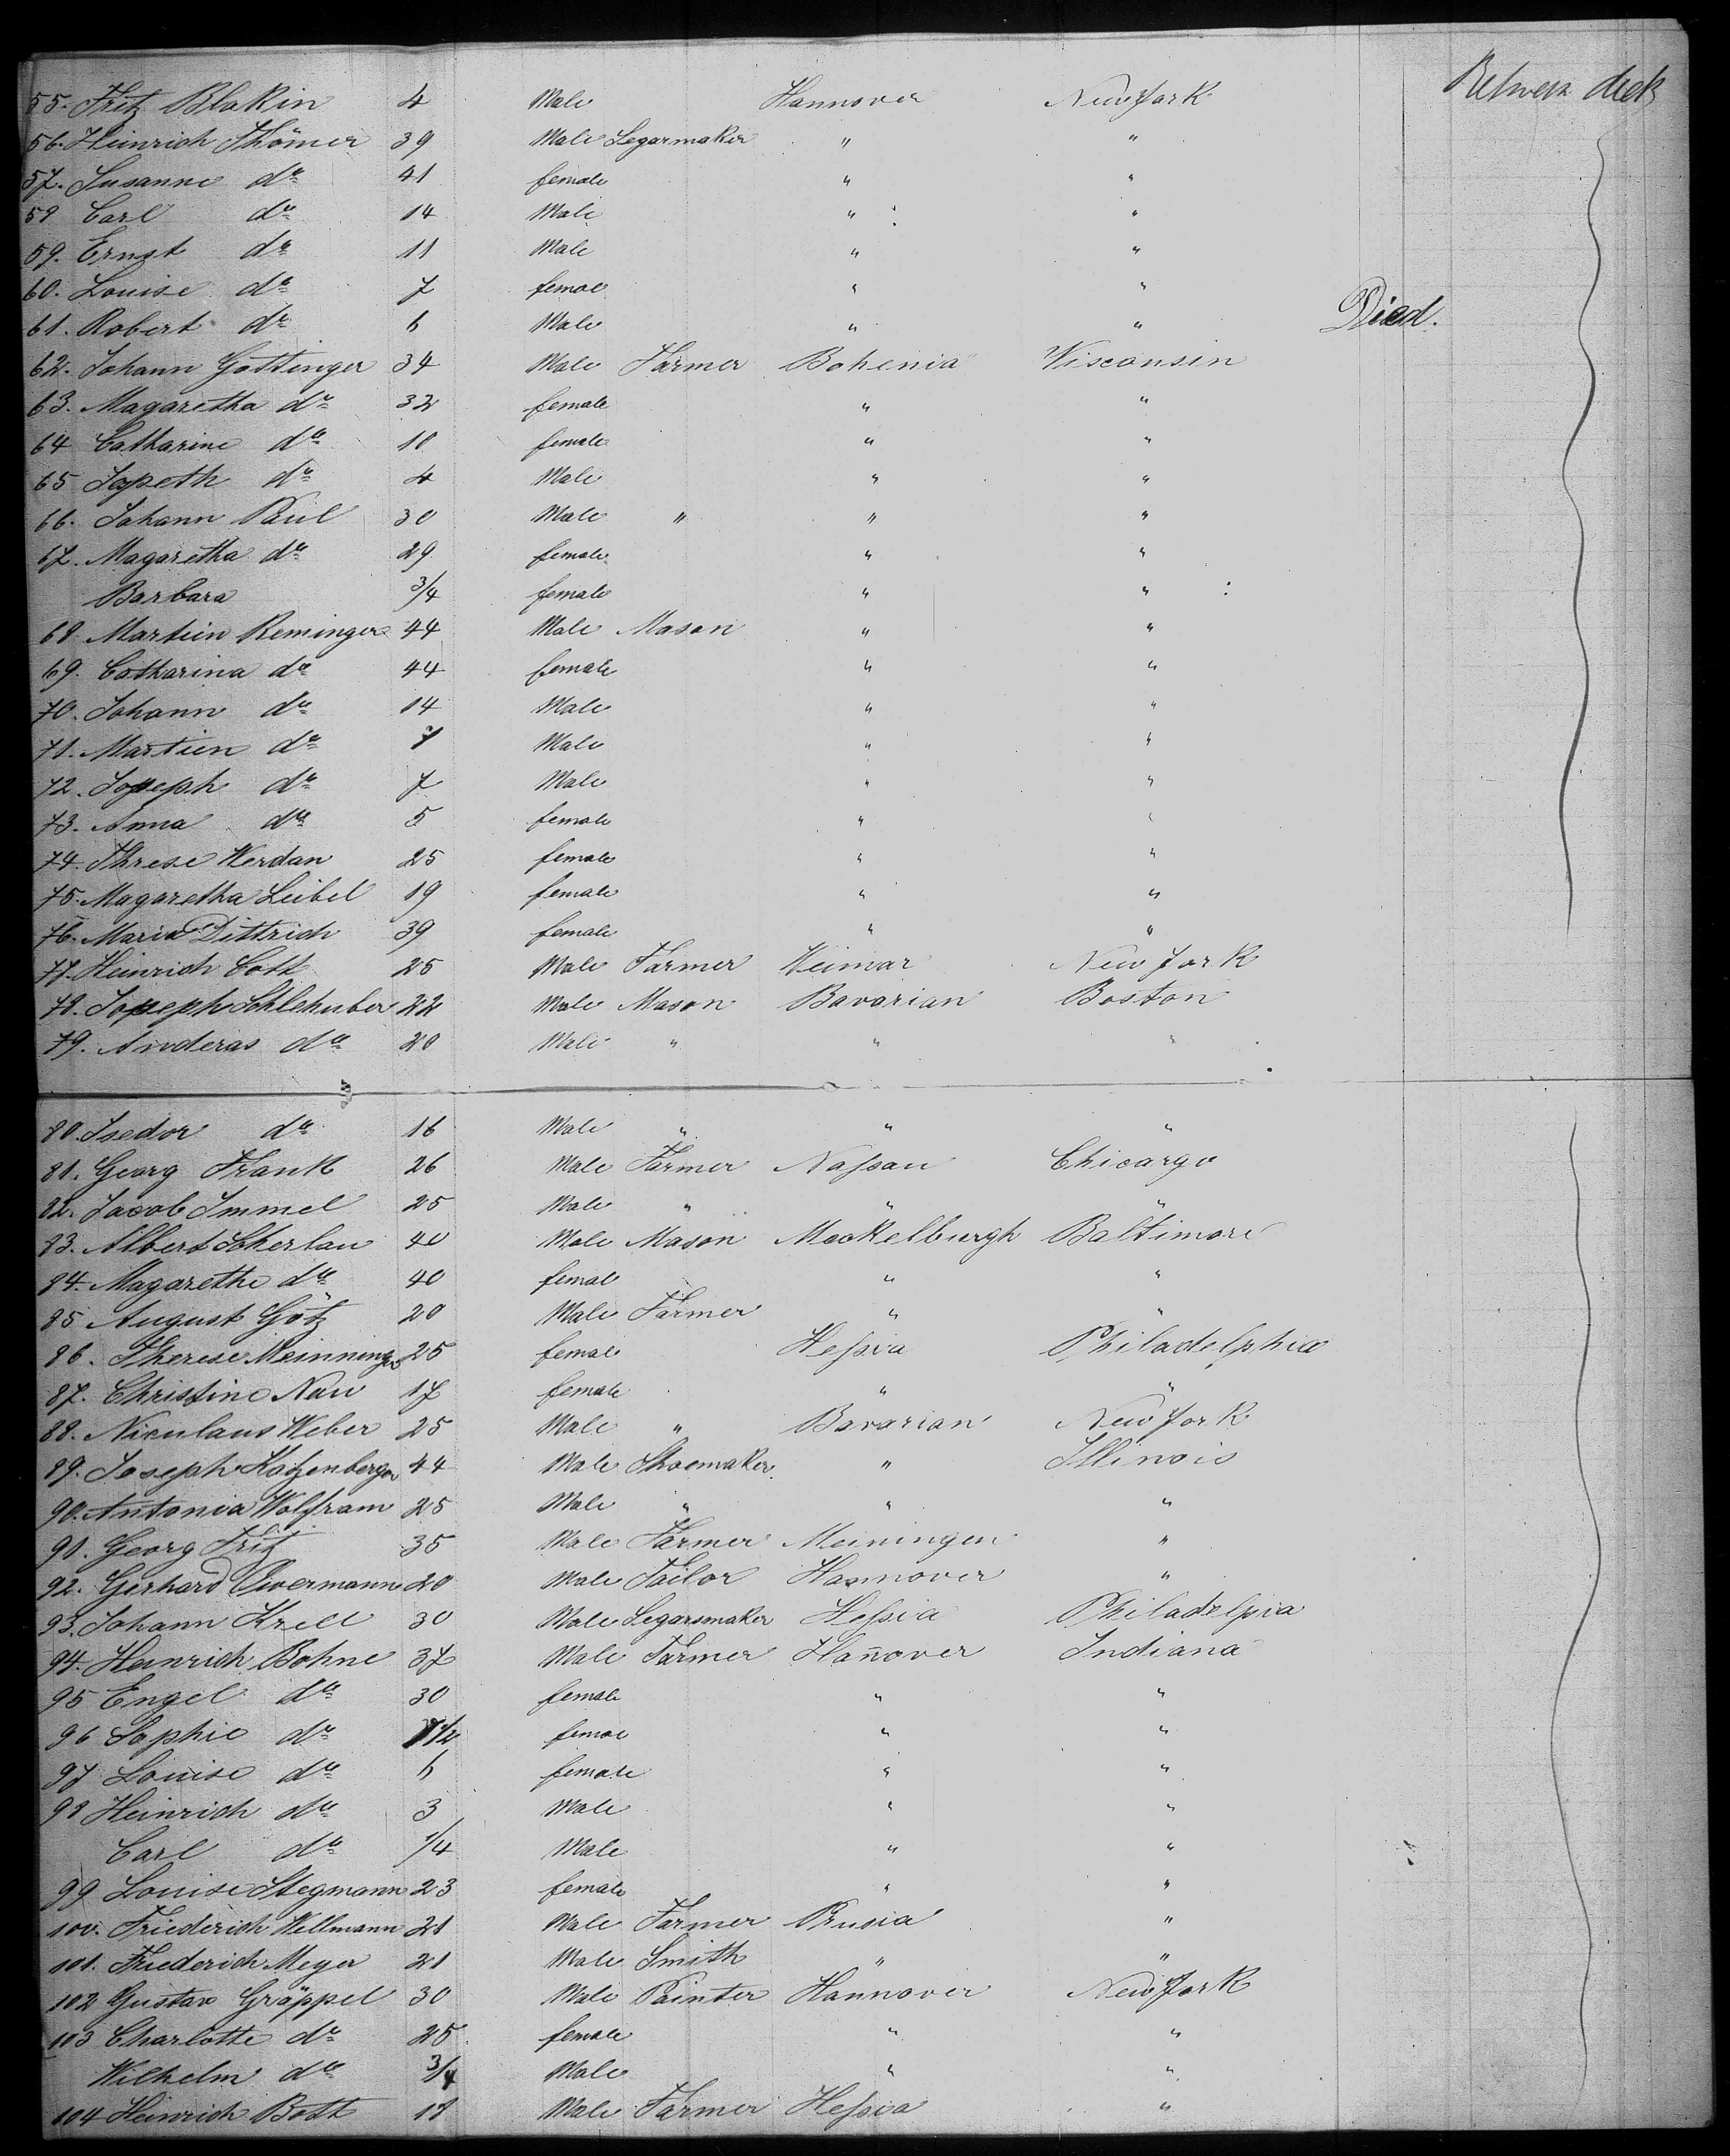 Between deck
55. Fritz Blakin 4 Male Hannover New York
56. Heinrich Thömer 39 Male Segarmaker " "
57. Susanne do 41 female " "
58 Carl do 14 Male " "
59. Ernst do 11 Male " "
60. Louise do 7 femal " "
61. Robert do 6 Male " " Died.
62. Johann Göttinger 34 Male Farmer Bohemia Wisconsin
63. Magaretha do 32 female " "
64 Catharine do 10 female " "
65 Jopeth do 4 Male " "
66. Johann Paul 30 Male " " "
67. Magaretha do 29 female " "
Barbara 3/4 female " "
68. Martin Reminger 44 Male Mason " "
69. Catharina do 44 female " "
70. Johann do 14 Male " "
71. Martien do Male " "
72. Jopeph do 7 Male " "
73. Anna do 5 female " "
74. Threse Werdan 25 female " "
75. Magaretha Leibel 19 female " "
76. Maria Dittrich 39 female " "
77. Heinrich Cott 25 Male Farmer Weimar New York
78. Jopeph Schlehuber 22 Male Mason Bavarian Boston
79. Anderas do 20 Male " " "
80. Isedor do 16 Male " " "
81. Georg Frank 26 Male Farmer Naſsau Chicargo
82. Jacob Immel 25 Male " " "
83. Albert Scherlau 40 Male Mason Mockelburgh Baltimore
84. Magarethe do 40 femal " "
85 August Götz 20 Male Farmer " "
86. Therese Meinninger 25 female Heſsia Philadelphia
87. Christine Nau 17 female " "
88. Niculaus Weber 25 Male " Bavarian New York
89. Joseph Katzenberger 44 Male Shoemaker " Illinois
90. Antonia Wolfram 25 Male " " "
91. Georg Fritz 35 Male Farmer Meiningen "
92. Gerhard Evermann 20 Male Tailor Hannover "
93. Johann Krell 30 Male Segarsmaker Heſsia Philadelpia
94. Heinrich Bohne 37 Male Farmer Hañover Indiana
95 Engel do 30 female " "
96 Sophie do femal " "
97 Louise do 6 female " "
98 Heinrich do 3 Male " "
Carl do 1/4 Male " "
99 Louise Stegmann 23 female " "
100. Friederich Willmann 21 Male Farmer Prusia "
101. Friederich Meyer 21 Male Smith " "
102 Gustav Gräppel 30 Male Painter Hannover New York
103 Charlotte do 25 female " "
Wilhelm do 3/4 Male " "
104 Heinrich Bott 18 Male Farmer Heſsia "